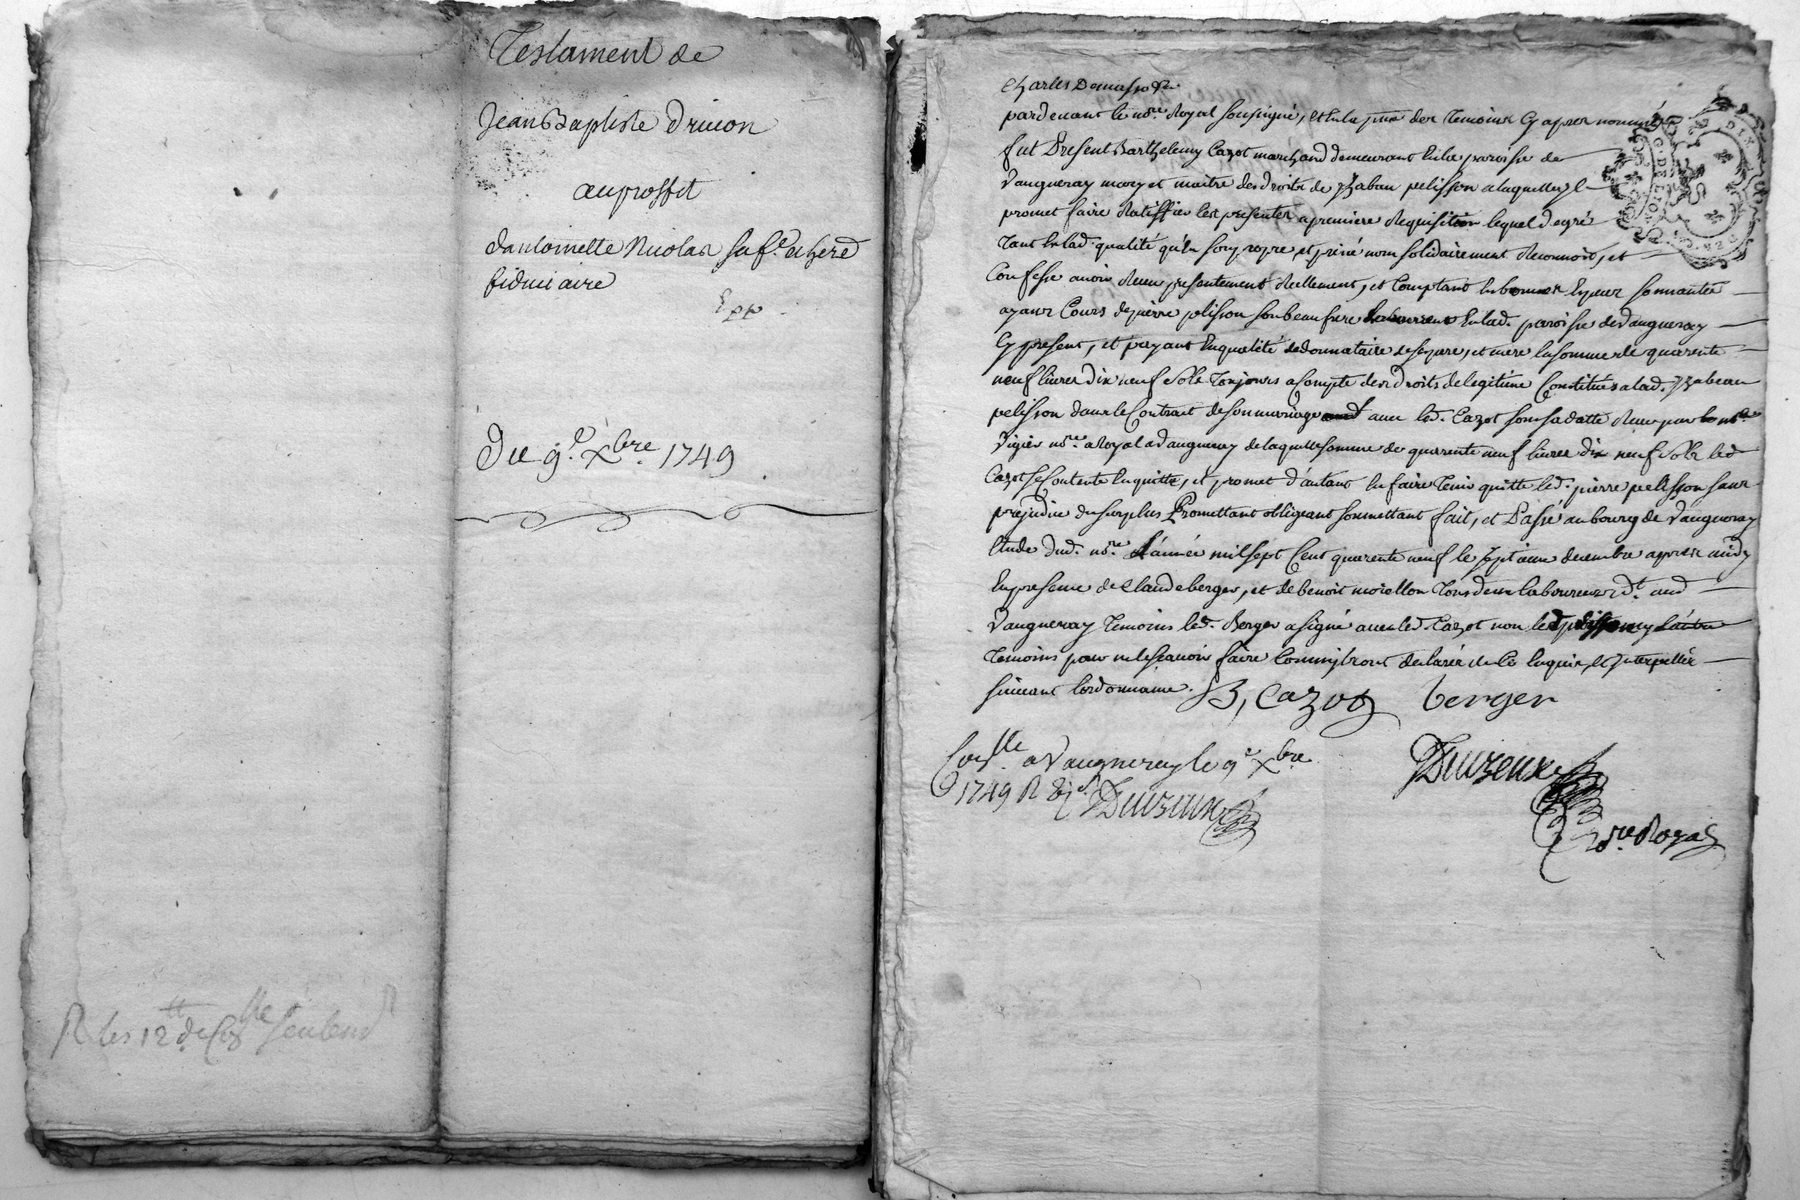 Testament de
Jean Baptiste Drivon
au proffit
dantoinette Nicolas sa f.e et here
fiduciaire
Exp
Du 9.e Xbre 1749
R les 12tt de seulem.t
Charles Demasso &c
pardevant le no.re Royal soussigné, et en la pnce des Temoins Cy apres nommés
fut Present Barthelemy Cazot marchand demeurant En la paroisse de
Vaugneray mary et maitre des droits de yzabau pelisson a laquelle jl
promet faire Ratiffier les presentes a premiere Requisition lequel de gré
Tant En lad. qualité qu'En son propre et privé nom solidairement Reconnoit, et
Confesse avoir Receu presentement Reellement, et Comptant En bonnes Especes sonnantes
ayant Cours de pierre pelisson son beaufrere En lad. paroisse de Vaugneray
Cy present, et payant En qualité de donnataire de ses pere, et mere la somme de quarente
neuf livres dix neuf sols Toujours a Compte des droits de legitime Constitués a lad. yzabeau
pelisson dans le Contrat de son mariage avec led. Cazot sous sa datte Receu par
Vigier no.re Royal a Vaugneray de laquelle somme de quarente neuf livres dix neuf sols led
Cazot se Contente En quitte, et promet d'autant En faire Tenir quitte led. pierre pelisson sans
prejudice du surplus Promettant obligeant soumettant fait, et Passé au bourg de Vaugneray
Etude dud. no.re L'année mil sept Cent quarente neuf le septieme decembre apres midy
En presence de Claude berger, et de benoit morellon Tous deux laboureurs d.t aud
Vaugneray Temoins led. Berger a signé avec led. Cazot non led pelisson ny l'autre
Temoins pour ne le sçavoir faire Comm'ils ont declaré de Ce Enquis, et jnterpellés
suivant l'ordonnance. B, Cazot berger
Deuzeux
no.re Royal
Con.lle a Vaugneray le 9.e Xbre
1749 R Deuzeux